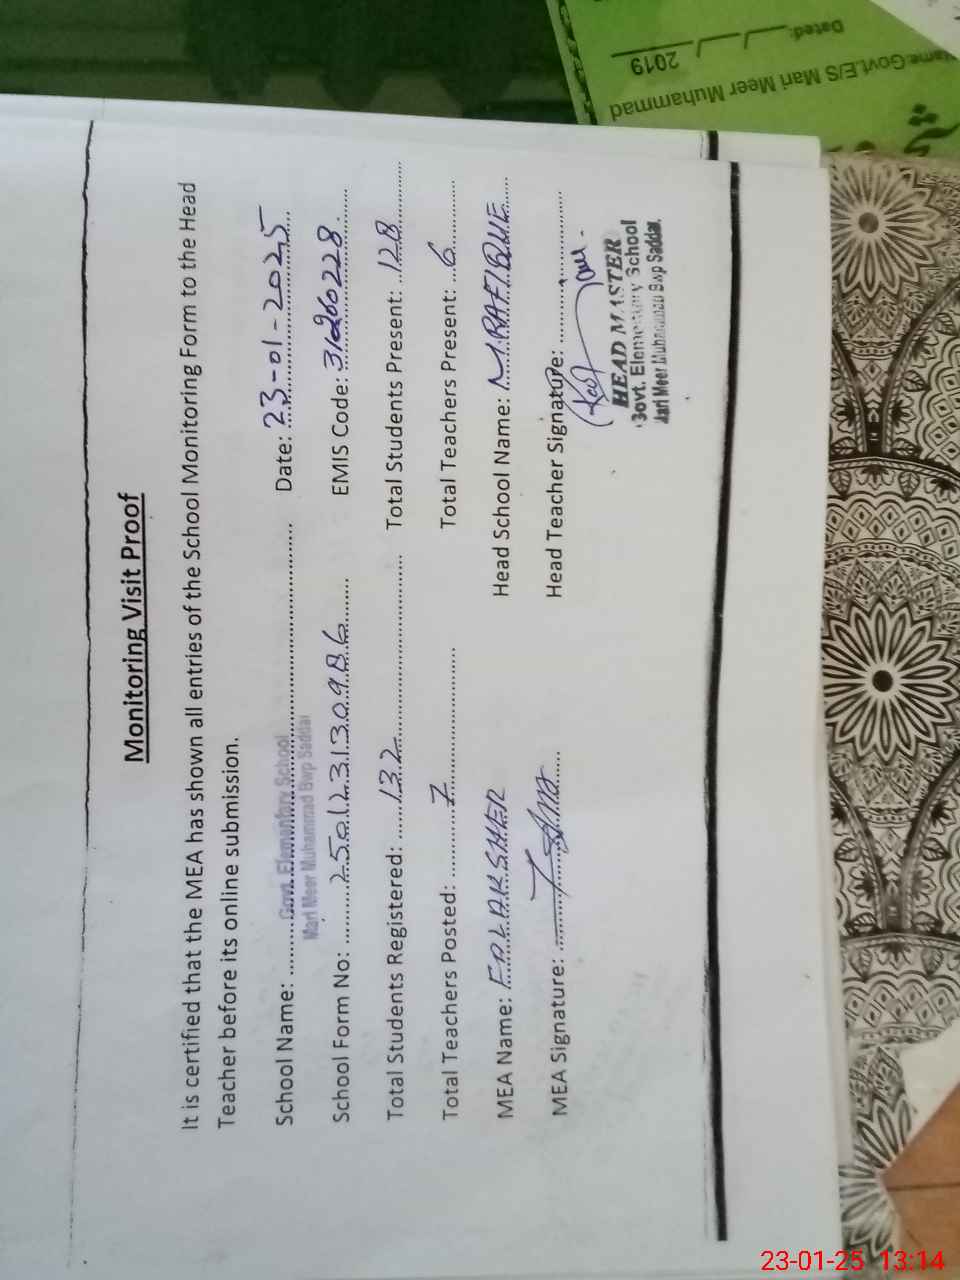 Monitoring Visit Proof
It is certified that the MEA has shown all entries of the School Monitoring Form to the Head
Teacher before its online submission.
School Name: Govt. Elementary School Date: 23-01-2025
Mari Meer Muhammad Bwp Saddar
School Form No: EMIS Code: 31260228
Total Students Registered: 132 Total Students Present: 128
Total Teachers Posted: 7 Total Teachers Present: 6
MEA Name: FALAKSHER Head School Name: M.RAFIQUE
MEA Signature: Head Teacher Signature:
HEAD MASTER
Govt. Elementary School
Mari Meer Muhammad Bwp Saddar
Name:Govt.E/S Mari Meer Muhammad
Dated: __/__/2019
23-01-25 13:14